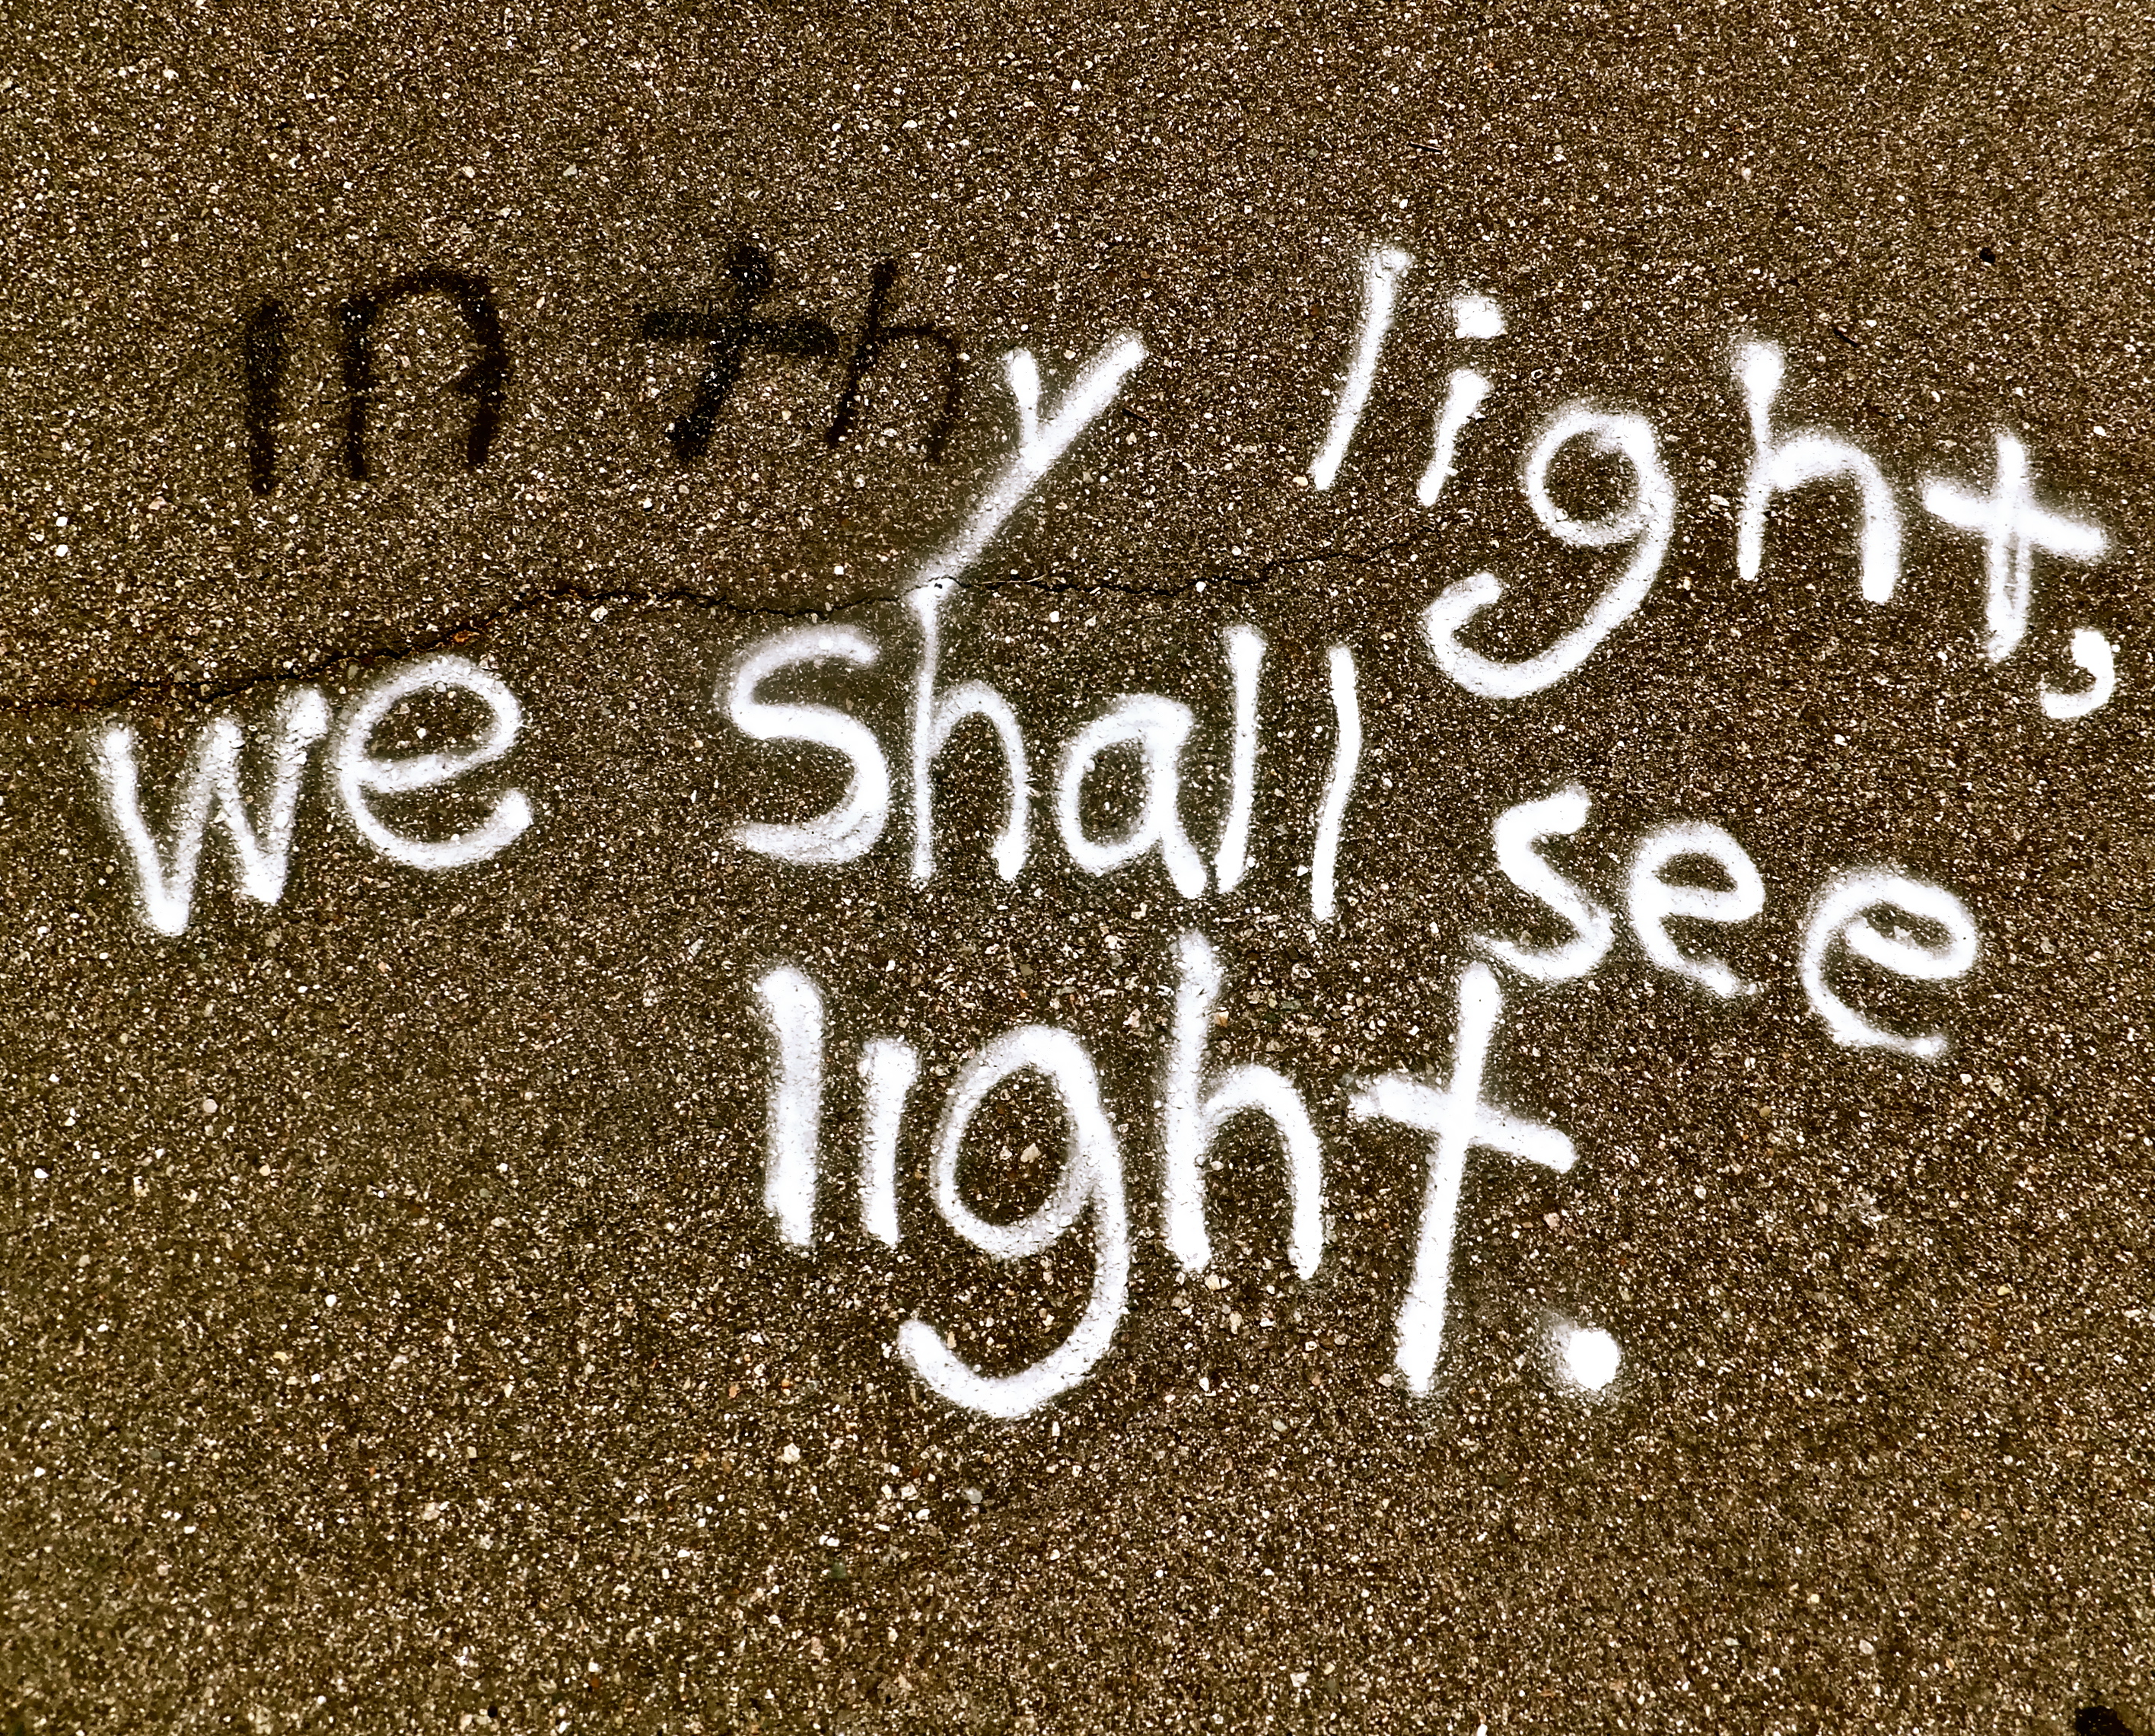 in thy light,
we shall see
light.